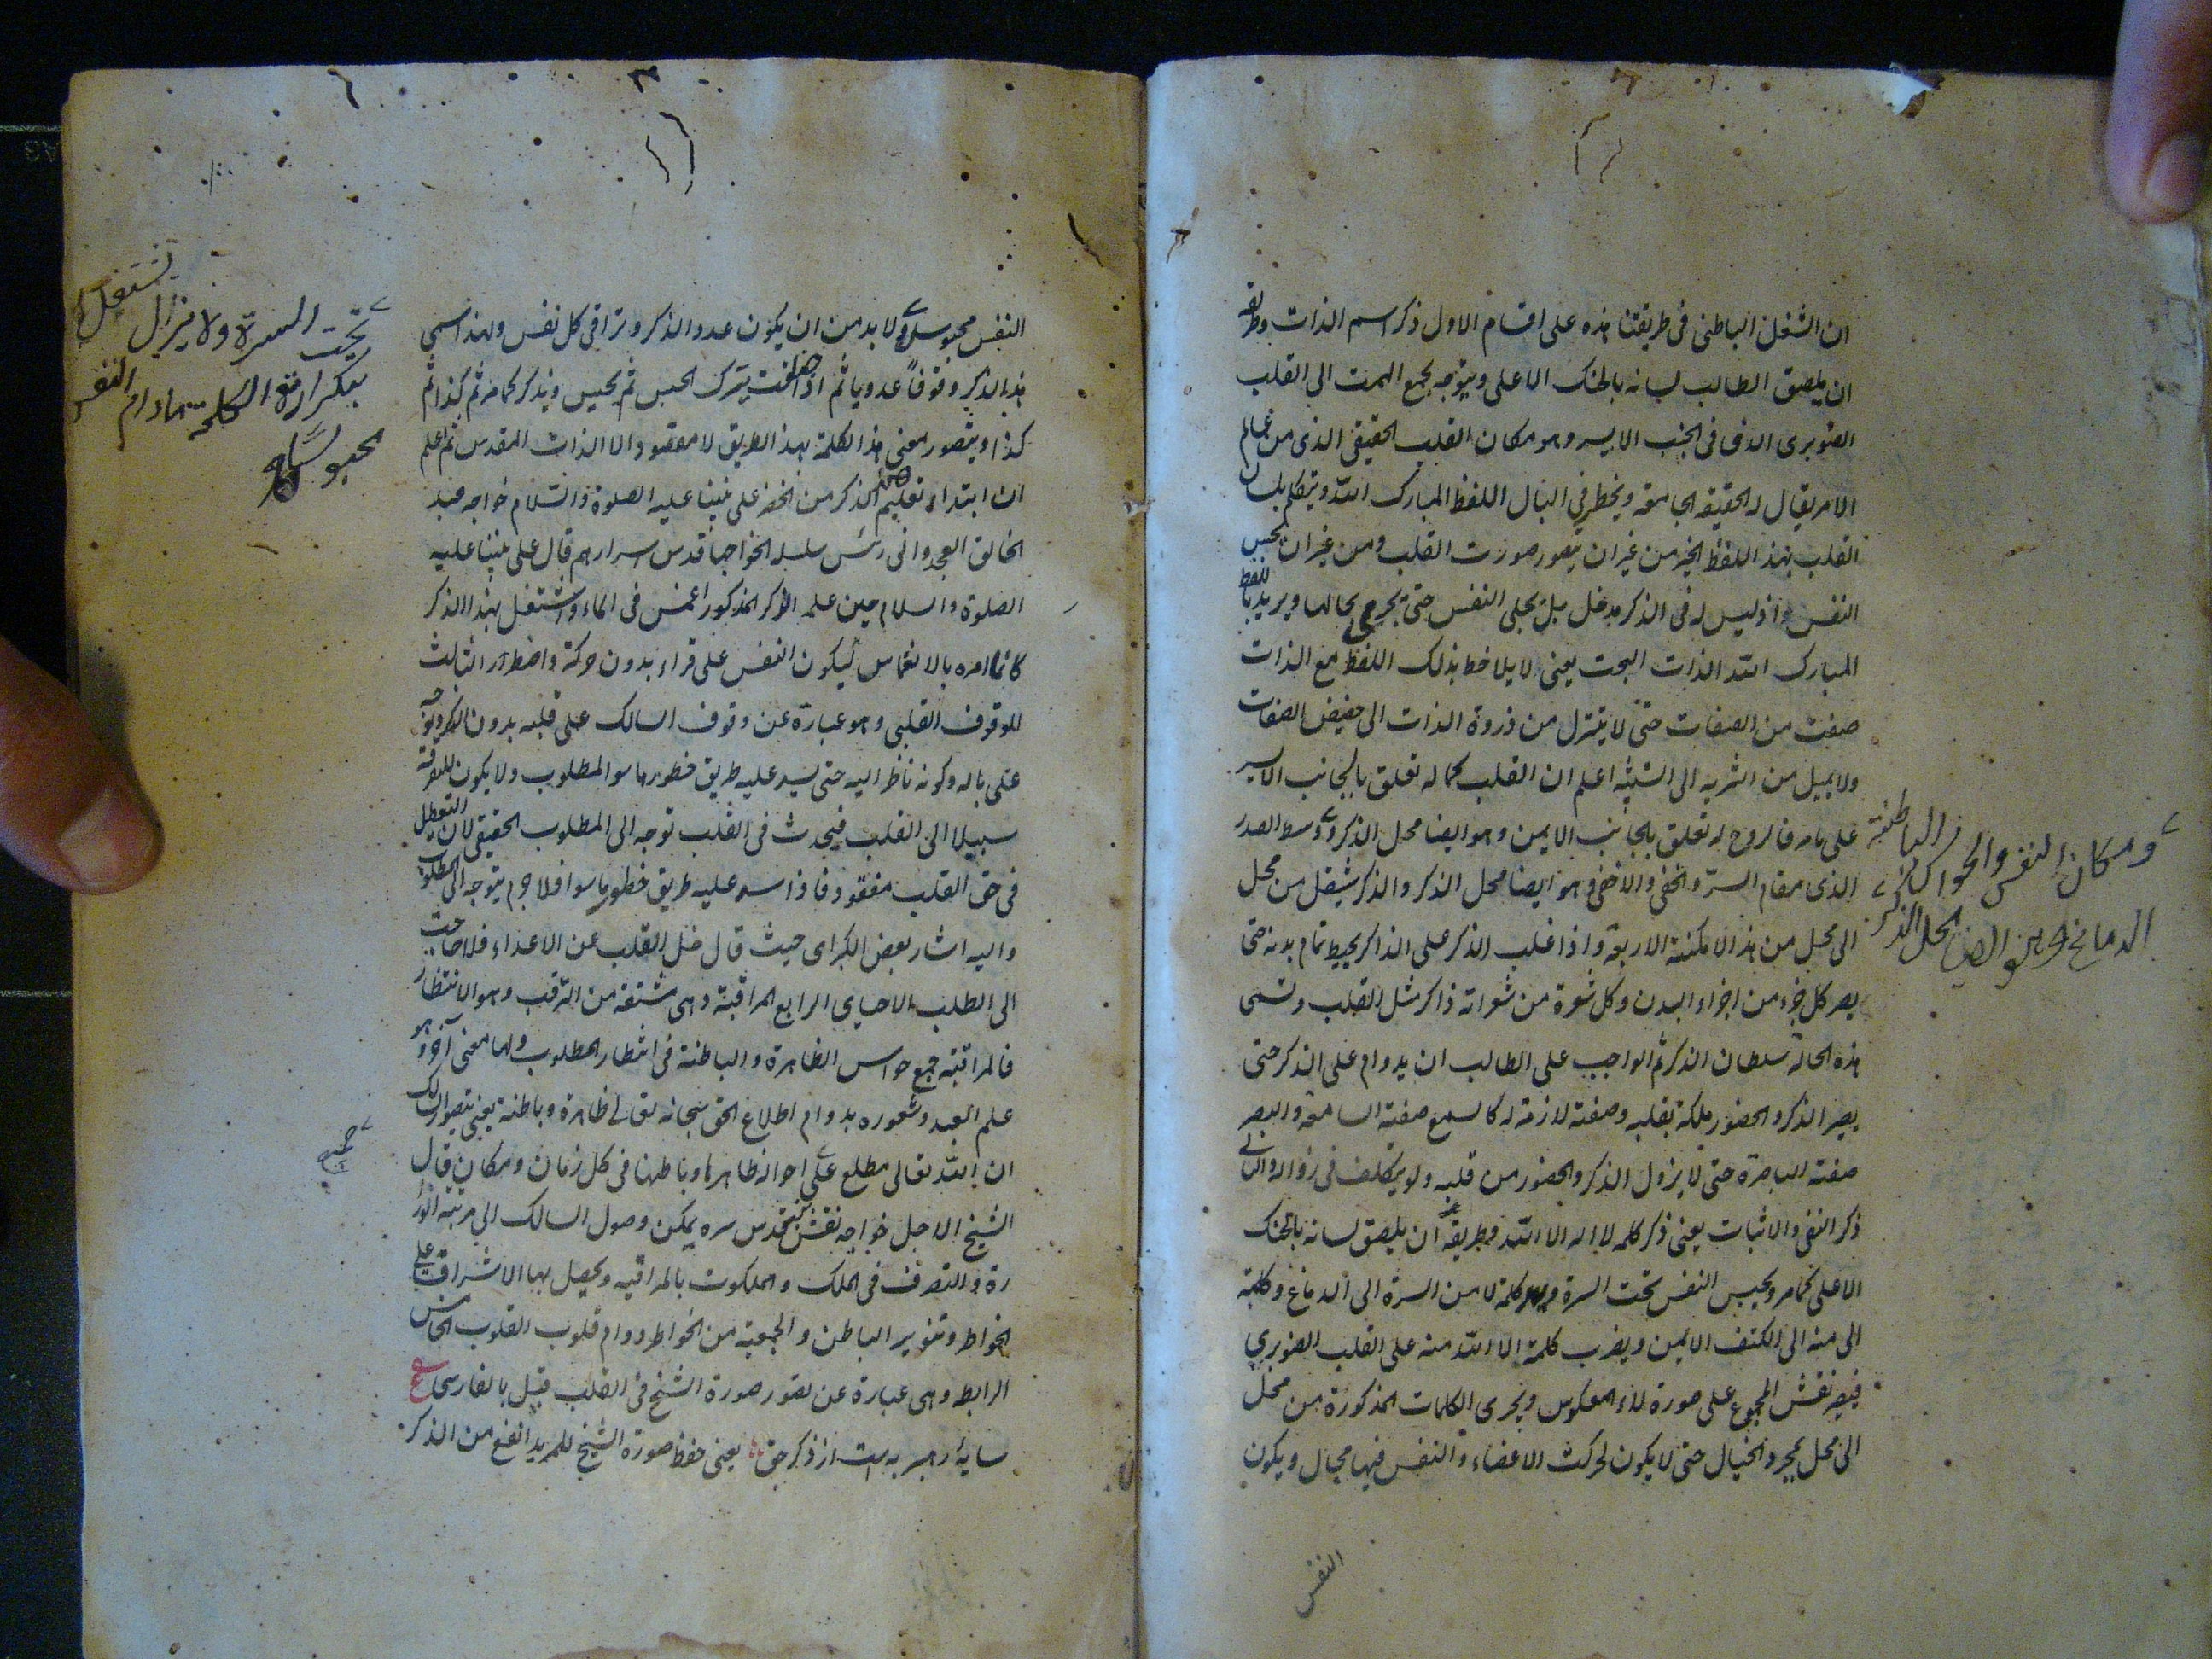 ان الشغل الباطنى فى طريقتنا هذه على اقسام الاول ذكر اسم الذات وطريقه
ان يلصق الطالب لسانه بالحنك الاعلى ويتوجه بجمع الهمت الى القلب
الصنوبرى الذى فى الجنب الايسر وهو مكان القلب الحقيقى الذى من عالم
الامر يقال له الحقيقه الجامعه ويخطر فى البال اللفظ المبارك الله ويتكلم بلسان
القلب بهذا اللفظ الخير من غير ان يتصور صورت القلب ومن غير ان يحبس
النفس واذ ليس له فى الذكر مدخل بل يخلى النفس حتى تجرى بحالها ويريد باللفظ
المبارك الله الذات البحت يعنى لا يلاحظ بذلك اللفظ مع الذات
صفت من الصفات حتى لا يتنزل من ذروة الذات الى حضيض الصفات
ولا يميل من التنزيه الى التشبيه اعلم ان القلب كما له تعلق بالجانب الايسر
على ما مر فالروح له تعلق بالجانب الايمن وهو ايضا محل الذكر ووسط الصدر
الذى مقام السرّ والخفى والاخفى وهو ايضا محل الذكر والذكر ينتقل من محل
الى محل من هذ الامكنة الاربعة واذا غلب الذكر على الذاكر يحيط تمام بدنه حتى
يصر كل جزء من اجزاء البدن وكل شعرة من شعراته ذاكر مثل القلب وتسمى
هذه الحالة سلطان الذكر ثم الواجب على الطالب ان يدوام على الذكر حتى
يصير الذكر والحضور ملكة بقلبه وصفتة لازمة له كالسمع صفتة السامعه والبصر
صفتة الباصرة حتى لا يزول الذكر والحضور من قلبه ولو يتكلف فى زواله والثانى
ذكر النفى والاثبات يعنى ذكر كلمه لا اله الا الله وطريقه ان يلصق لسانه بالحنك
الاعلى كما مر ويحبس النفس تحت السرة ويمد كلمة لا من السرة الى الدماغ وكلمة
الى منه الى الكتف الايمن ويضرب كلمة الا الله منه على القلب الصنوبري
فيصير نقش المجموع على صورة لاء المعكوس ويجرى الكلمات المذكورة من محل
الى محل بمجرد الخيال حتى لا يكون لحركت الاعضاء والنفس فيها مجال ويكون
النفس
ومكان النفس والحواس الباطنة
الدماغ وهو ايضا محل الذكر
النفس محبوسا ولا بد من ان يكون عدد الذكر وترا فى كل نفس ولهذا سمى
هذ الذكر وقوفاً عدديا ثم اذا ضاقت يترك الحبس ثم يحبس ويذكر كما مر ثم كذا ثم
كذا ويتصور معنى هذ الكلمة بهذ الطريق لا مقصود الا الذات المقدس ثم اعلم
ان ابتداء تعليم الذكر من الخضر على نبينا عليه الصلوة والسلام خواجه عبد
الخالق العجدوانى رئس سلسله الخواجها قدس اسرارهم قال على نبينا عليه
الصلوة والسلام حين علمه الذكر المذكور اغمس فى الماء واشتغل بهذا الذكر
كانما امره بالانغماس ليكون النفس على قراء بدون حركة واضطرار الثالث
للوقوف القلبى وهو عبارة عن وقوف السالك على قلبه بدون الذكر
على باله وكونه ناظر اليه حتى يسد عليه طريق خطور ما سو المطلوب ولا يكون للتفرقة
سبيلا الى القلب فيحدث فى القلب توجه الى المطلوب الحقيقى لان التعطل
فى حق القلب مفقود فاذا سد عليه طريق خطور ما سوا فلا جرم يتوجه الى المطلوب
واليه اشار بعض الكبراى حيث قال خل القلب عن الاعداء فلا حاجت
الى الطلب الاحباى الرابع المراقبة وهى مشتقه من الترقب وهو الانتظار
فالمراقبته جمع حواس الظاهرة والباطنة فى انتظار المطلوب ولها معنى آخر وهو
علم العبد وشعوره بدوام اطلاع الحق سبحانه تعالى ظاهرة وباطنة يعنى يتصور السالك
ان الله تعالى مطلع على احوالى ظاهرها وباطنها فى كل زمان ومكان قال
الشيخ الاجل خواجه نقشبند قدس سره يمكن وصول السالك الى مرتبة الوز
رة والتصرف فى الملك والملكوت بالمراقبه ويحصل بها الاشراق على
الخواطر وتنوير الباطن والجمعية من الخواطر دوام قلوب القلوب الخامس
الرابط وهى عبارة عن تصور صورة الشيخ فى القلب قيل بالفارسى
سايۀ رهبر به است از ذكر حق يعنى حفظ صورة الشيخ للمريد انفع من الذكر
تحت السرة ولا يزال يشتغل
بتكرار هذ الكلمة ما دام النفس
محبوسا
جميع